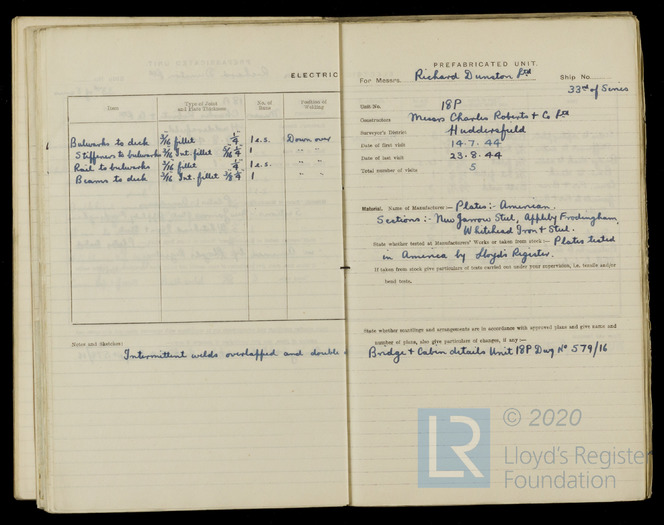 ELECTRIC
Item
Type of Joint and Plate Thickness
No. of Runs
Position of Welding
Bulwarks to deck 3/16 fillet 1/4" 1 e.s. Down over
Stiffeners to bulwarks 3/16 Int. fillet 5/16 1/4 1 " "
Rail to bulwarks 3/16 fillet 1/4 1 e.s. " "
Beams to deck 3/16 Int. fillet 1/4 1 " "
Notes and Sketches:
Intermittent welds overlapped and double
PREFABRICATED UNIT.
For Messrs. Richard Dunston Ltd Ship No.
33rd of Series
Unit No. 18P
Constructors Messrs Charles Roberts & Co Ltd
Surveyor's District Huddersfield
Date of first visit 14.7.44
Date of last visit 23.8.44
Total number of visits 5
Material. Name of Manufacturer:— Plates:- American.
Sections:- New Jarrow Steel, Appleby Frodingham,
Whitehead Iron & Steel.
State whether tested at Manufacturers' Works or taken from stock:— Plates tested
in America by Lloyd's Register.
If taken from stock give particulars of tests carried out under your supervision, i.e. tensile and/or
bend tests.
State whether scantlings and arrangements are in accordance with approved plans and give name and
number of plans, also give particulars of changes, if any:—
Bridge & Cabin details Unit 18P Dwg No 579/16
© 2020
LR
Lloyd's Register
Foundation